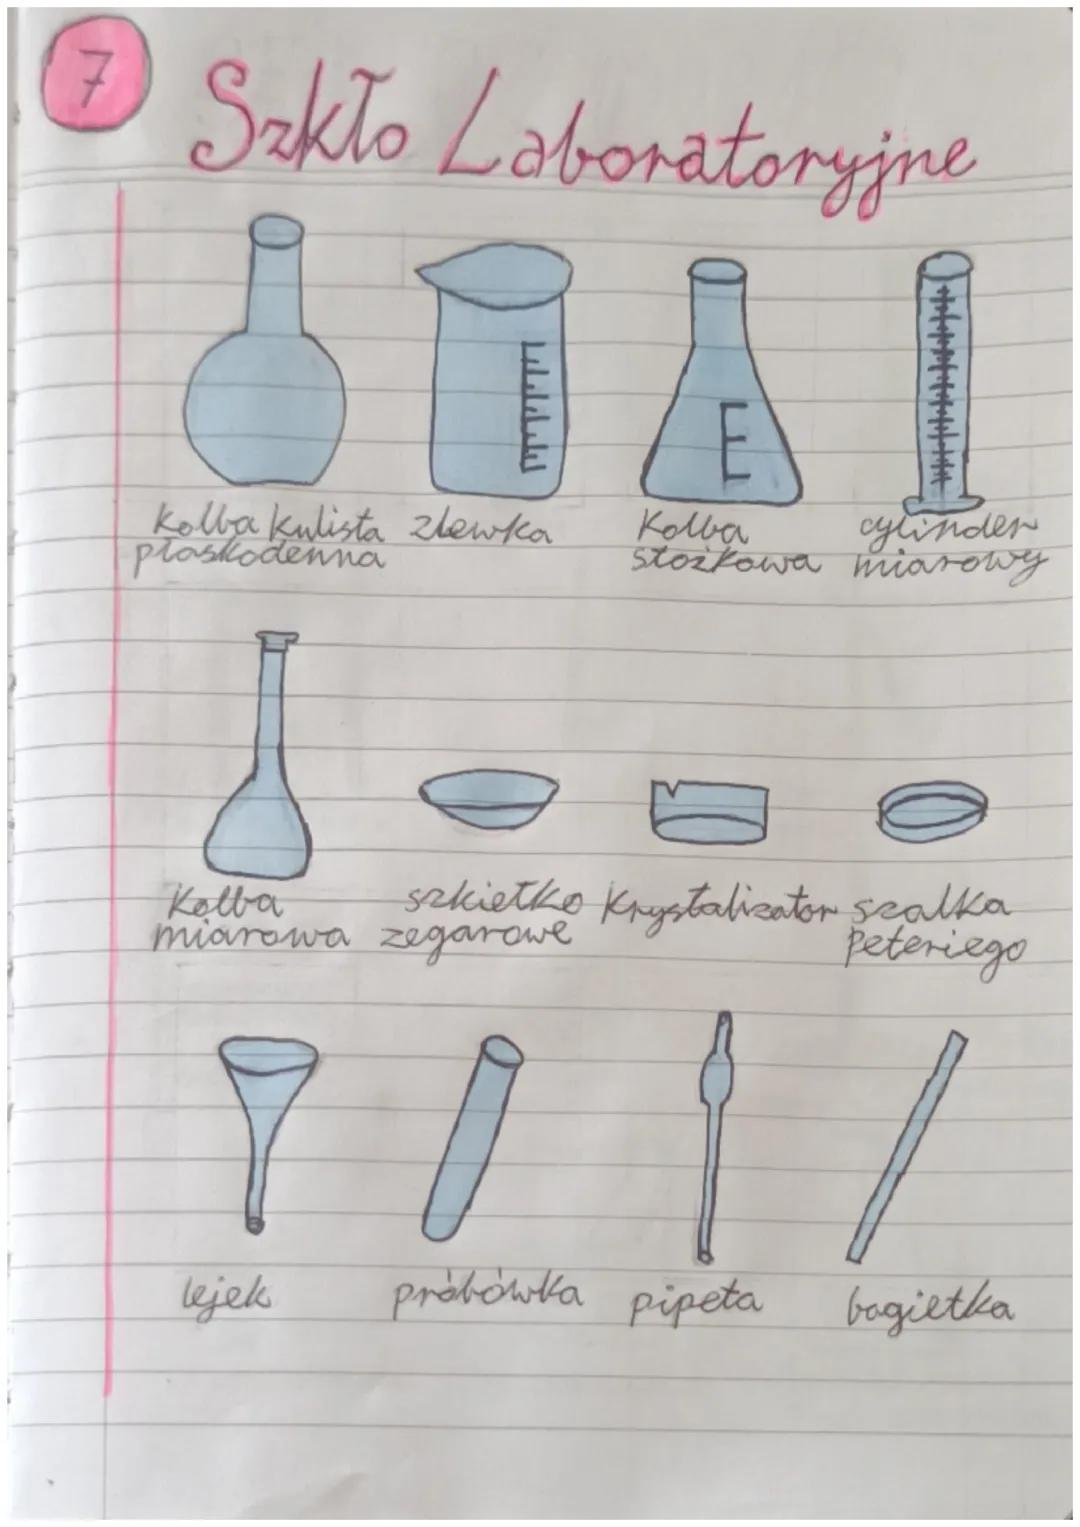 7
Szkło Laboratoryjne
Kolba kulista zlewka Kolba cylinder
płaskodenna stożkowa miarowy
Kolba szkiełko Krystalizator szalka
miarowa zegarowe Peteriego
lejek próbówka pipeta bagietka